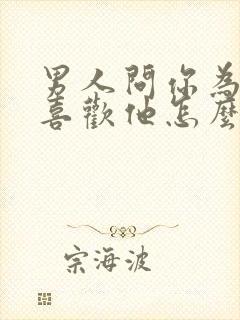 男人問你為
喜歡他怎麼
宗海波